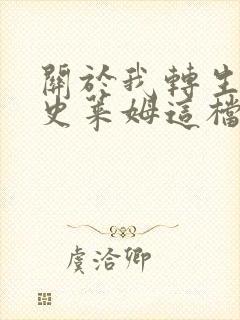 關於我轉生
史萊姆這檔
虞洽卿